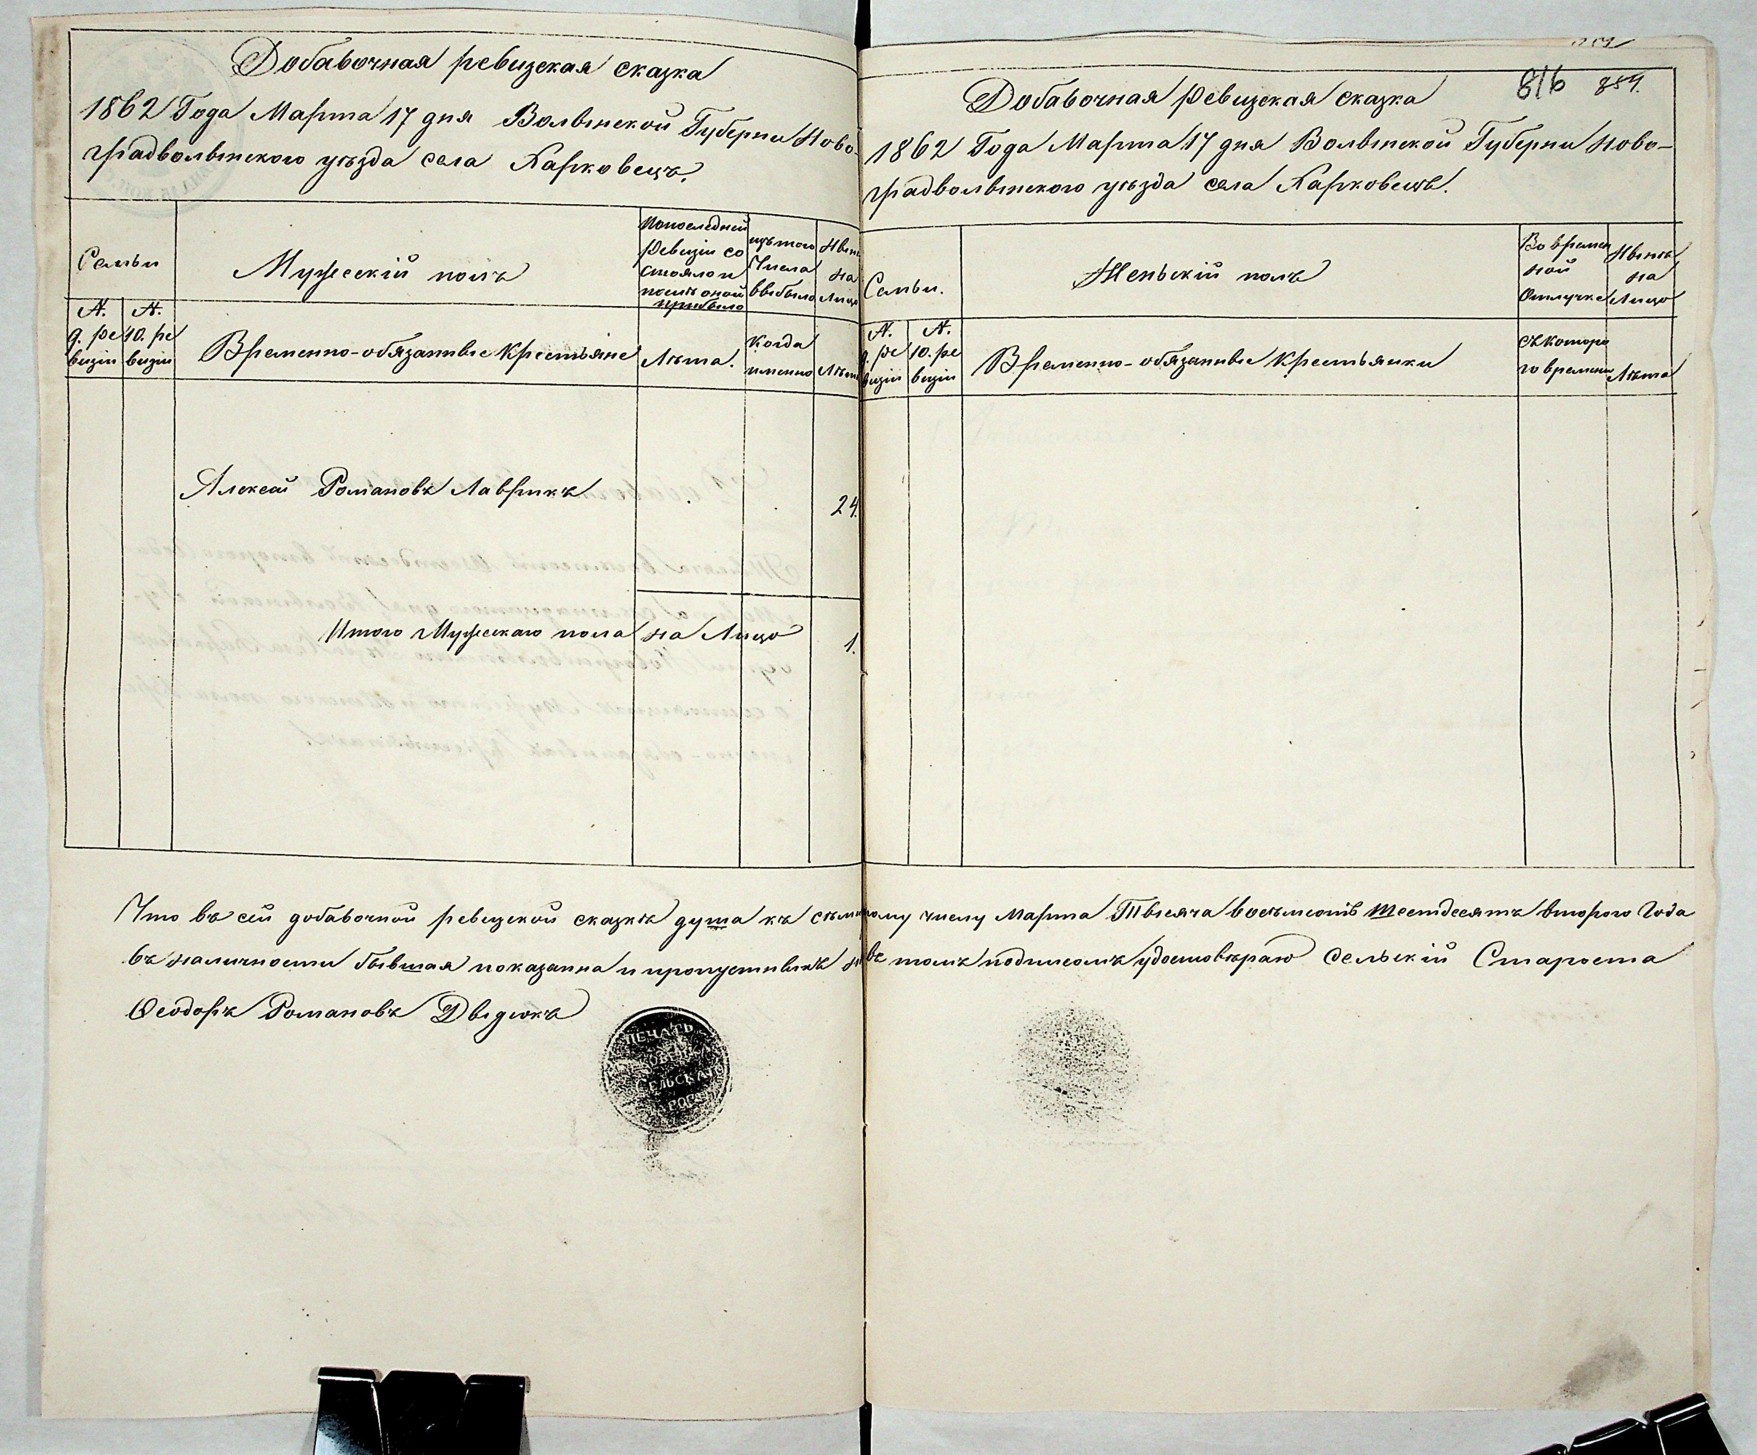 Добавочная ревизская сказка
1862 Года Марта 17 дня Волынской Губерни Ново-
градволынского уѣзда села Карковецъ.
Семьи
Мужескій полъ
Попоследней
Ревизіи со
стояло и
послѣ оной
прибыло
изъ того
Числа
выбыло
Нынѣ
на
Лицо
№.
9. ре
визіи
№.
10. ре
визіи
Временно-обязанные крестьяне
Лѣта.
Когда
именно
Лѣта
Алексей Романовъ Лаврикъ
24.
Итого Мужескаго пола на Лицо
1.
816 854.
Добавочная Ревизская сказка
1862 Года Марта 17 дня Волынской Губерни Ново-
градволынского уѣзда села Карковецъ.
Семьи.
Женьскій полъ
Во времен
ной
Отлучке
Нынѣ
на
Лицо
№.
9. ре
визіи
№.
10. ре
визіи
Временно-обязанные крестьянки
съ которо
го времени
Лѣта
Что въ сей добавочной ревизской сказкѣ душа къ числу Марта Тысяча восемьсотъ шестдесятъ второго Года
въ наличности бывшая показанна и пропустивыхъ въ томъ подписомъ удостовѣраю Сельскій Староста
Ѳеодоръ Романовъ Дыдюкъ
ПЕЧАТЬ
СЕЛЬСКАГО